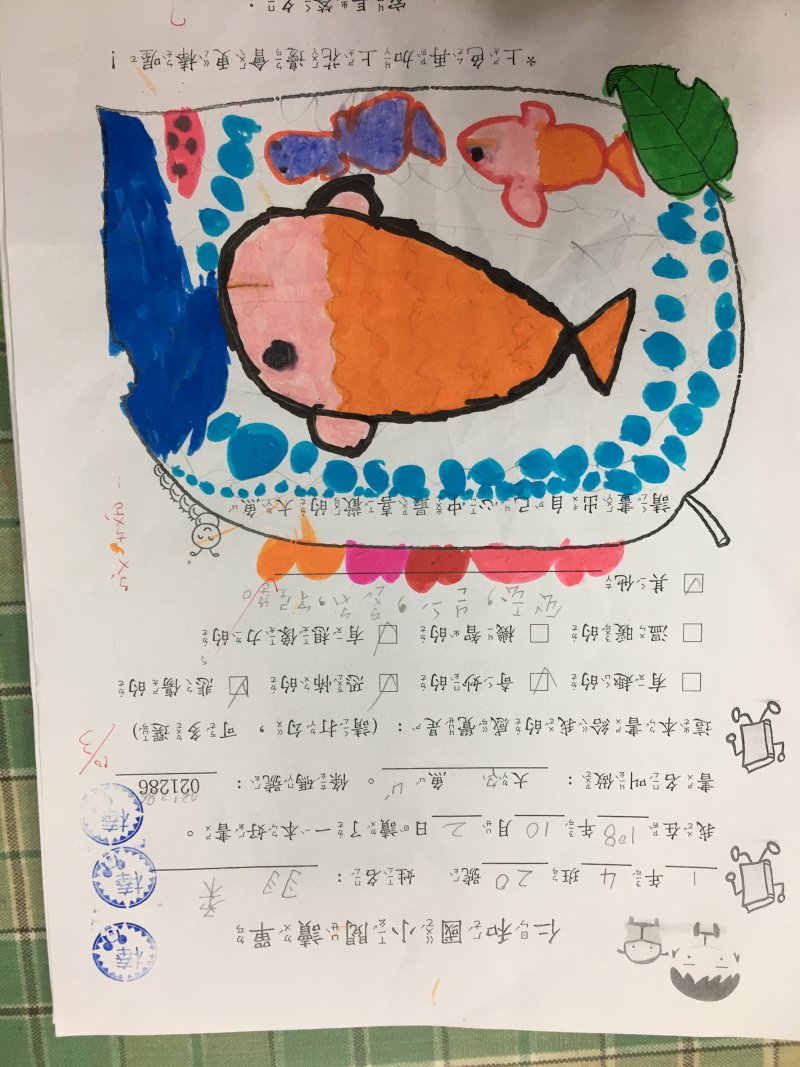 仁和國小閱讀單
1年4班20號 姓名：
我在108年10月2日讀了一本好書。
書名叫做：大魚。條碼號：021286
021286
這本書給我的感覺是：（請打勾，可多選）
□有趣的 ☑奇妙的 ☑恐怖的 ☑悲傷的
□溫暖的 □機智的 ☑有想像力的
☑其他
請畫出自己心中最喜歡的大魚
＊上色再加上花邊會更棒喔！
家長簽名：
棒
棒
棒
10/3